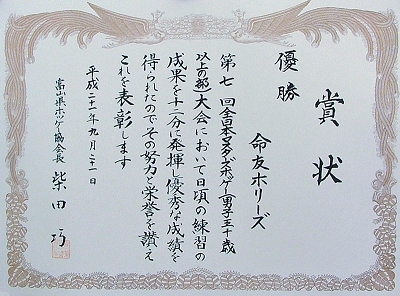 賞状
優勝
命友ホリーズ
第七回全日本マスターズホッケー(男子五十歳
以上の部)大会において日頃の練習の
成果を十二分に発揮し優秀な成績を
得られたのでその努力と栄誉を讃え
これを表彰します
平成二十一年九月二十一日
富山県ホッケー協会長
柴田巧